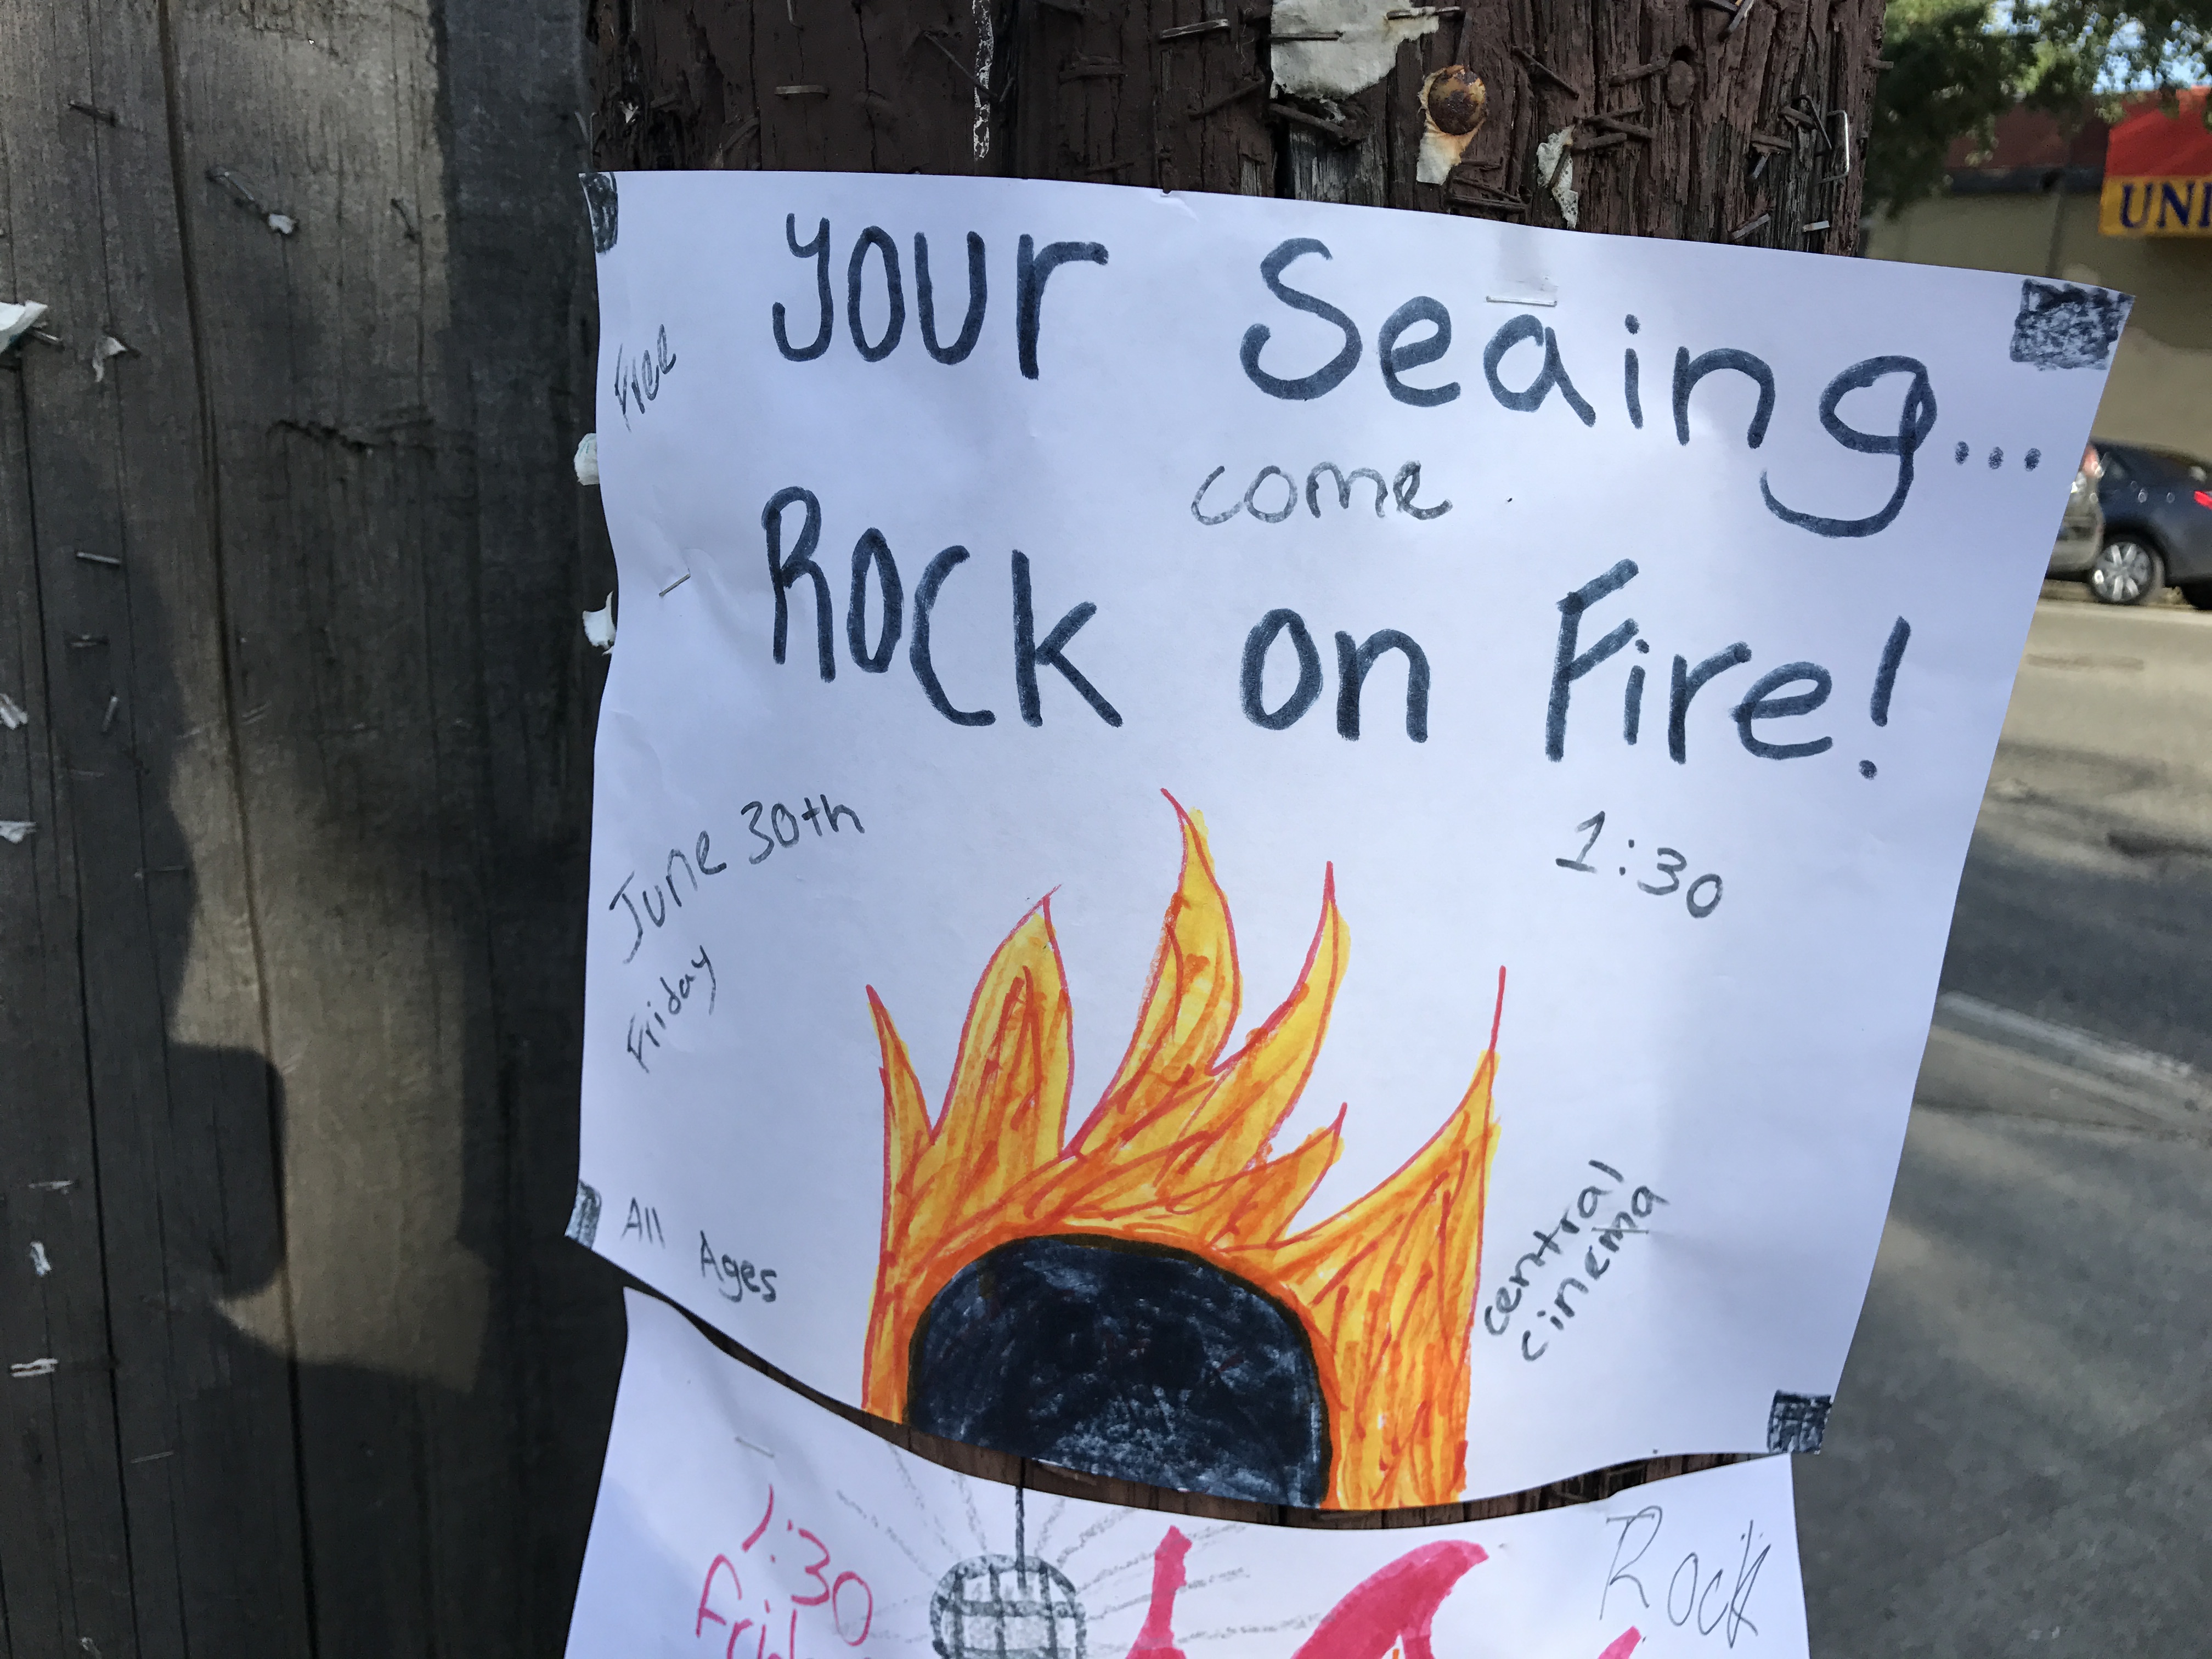 Your Seaing...
Free
come
Rock on Fire!
June 30th
Friday
1:30
All Ages
central
cinema
1:30
Rock
UNI